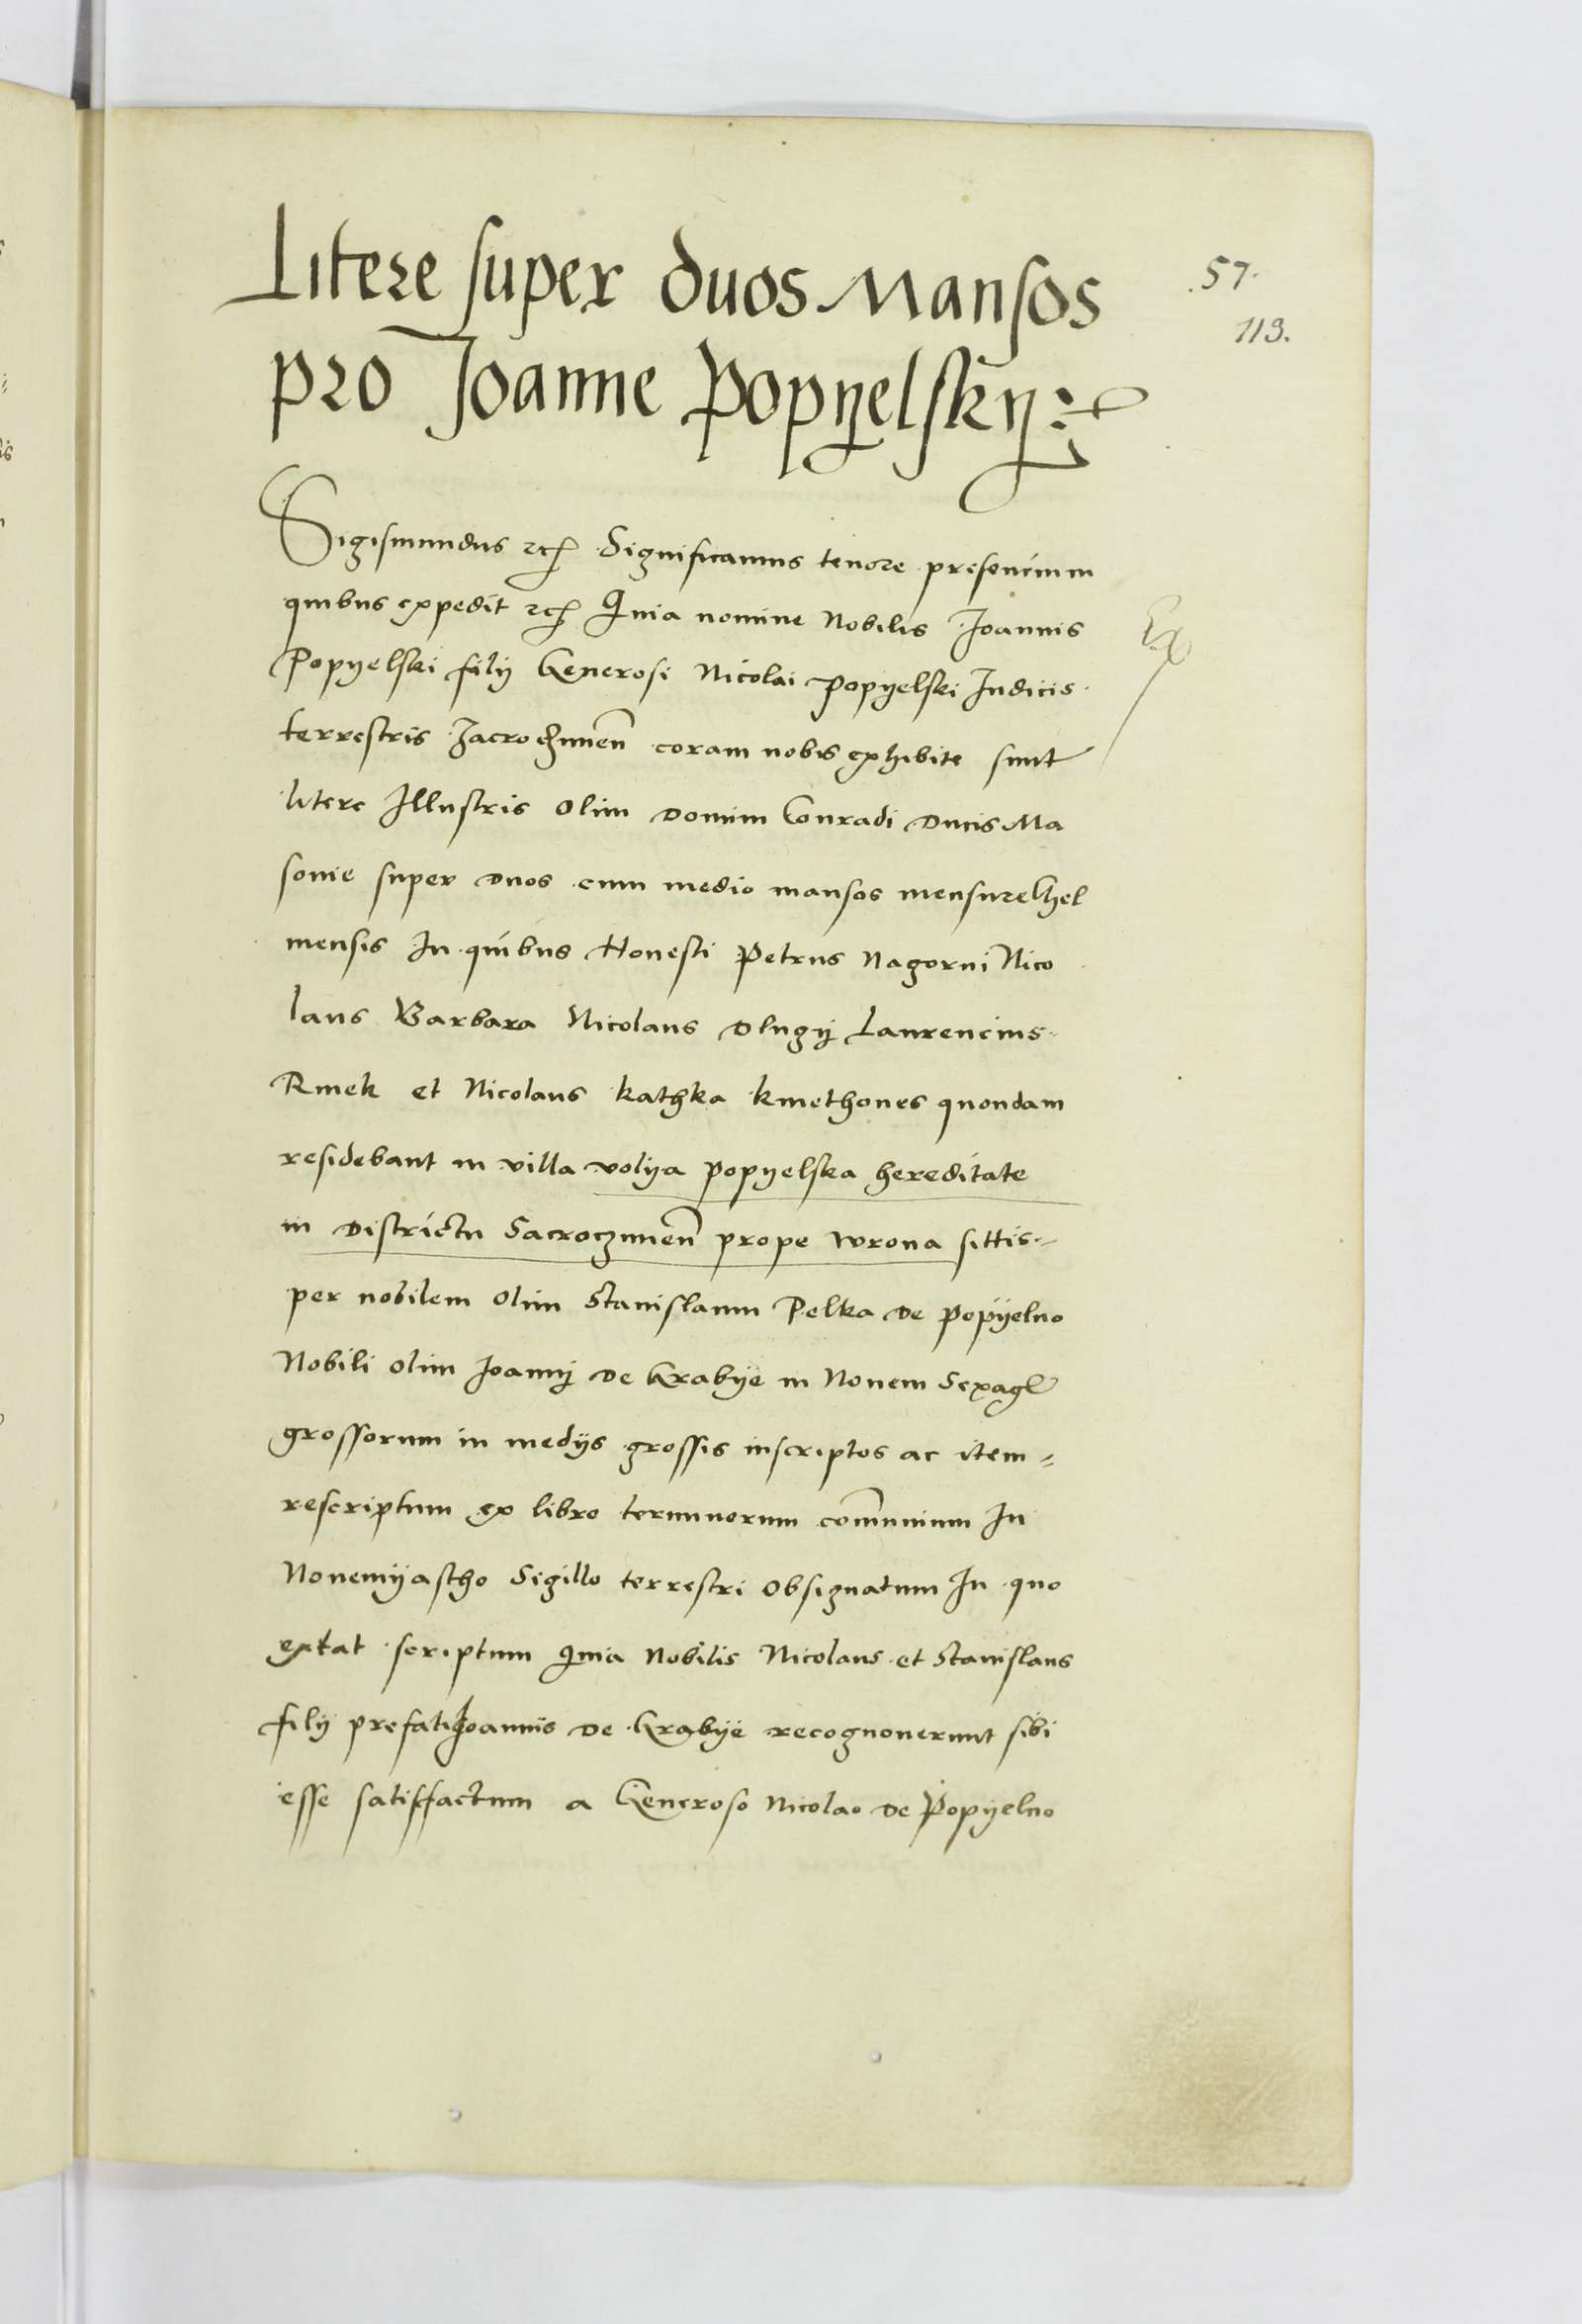 Litere super duos Mansos
57.
113.
pro Joanne Popyelsky
Sigismundus etc Significamus tenore presencium
quibus expedit etc Quia nomine Nobilis Joannis
Ex
Popyelski filij Generosi Nicolai Popyelski Iudicis
terrestris Zacroczimen̄ coram nobis exhibite sunt
litere Illustris olim Domini Conradi Ducis Ma
sovie super duos cum medio mansos mensure Chel
mensis In quibus Honesti Petrus Nagorni Nico
laus Barbara Nicolaus Dlugij Laurencius
Rmek et Nicolaus kathka kmethones quondam
residebant in villa volya popyelska hereditate
in Districtu Sacroczimen̄ prope Wrona sittis
per nobilem olim Stanislaum Pelka de Popÿelno
Nobili olim Joannj de Grabÿe in Novem Sexag
grossorum in medijs grossis inscriptos ac item
rescriptum ex libro terminorum com̄unium In
Novemÿastho Sigillo terrestri obsignatum In quo
extat scriptum Quia Nobilis Nicolaus et Stanislaus
filij prefati Joannis de Grabÿe recognoverunt sibi
esse satisfactum a Generoso Nicolao de Popyelno